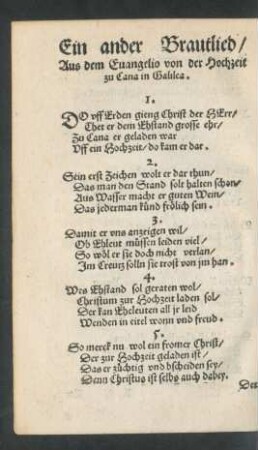 Ein ander Brautlied/
Aus dem Euangelio von der Hochzeit
zu Cana in Galilea.
1.
DO vff Erden gieng Christ der HErr/
Thet er dem Ehstand grosse ehr/
Zu Cana er geladen war
Vff ein Hochzeit/ do kam er dar.
2.
Sein erst Zeichen wolt er dar thun/
Das man den Stand solt halten schon/
Aus Wasser macht er guten Wein/
Das jederman künd frölich sein.
3.
Damit er vns anzeigen wil/
Ob Ehleut müssen leiden viel/
So wöl er sie doch nicht verlan/
Im Creutz solln sie trost von jm han.
4.
Wes Ehstand sol geraten wol/
Christum zur Hochzeit laden sol/
Der kan Eheleuten all jr leid
Wenden in eitel wonn vnd freud.
5.
So merck nu wol ein fromer Christ/
Der zur Hochzeit geladen ist/
Das er züchtig vnd bscheiden sey/
Denn Christus ist selbs auch dabey.